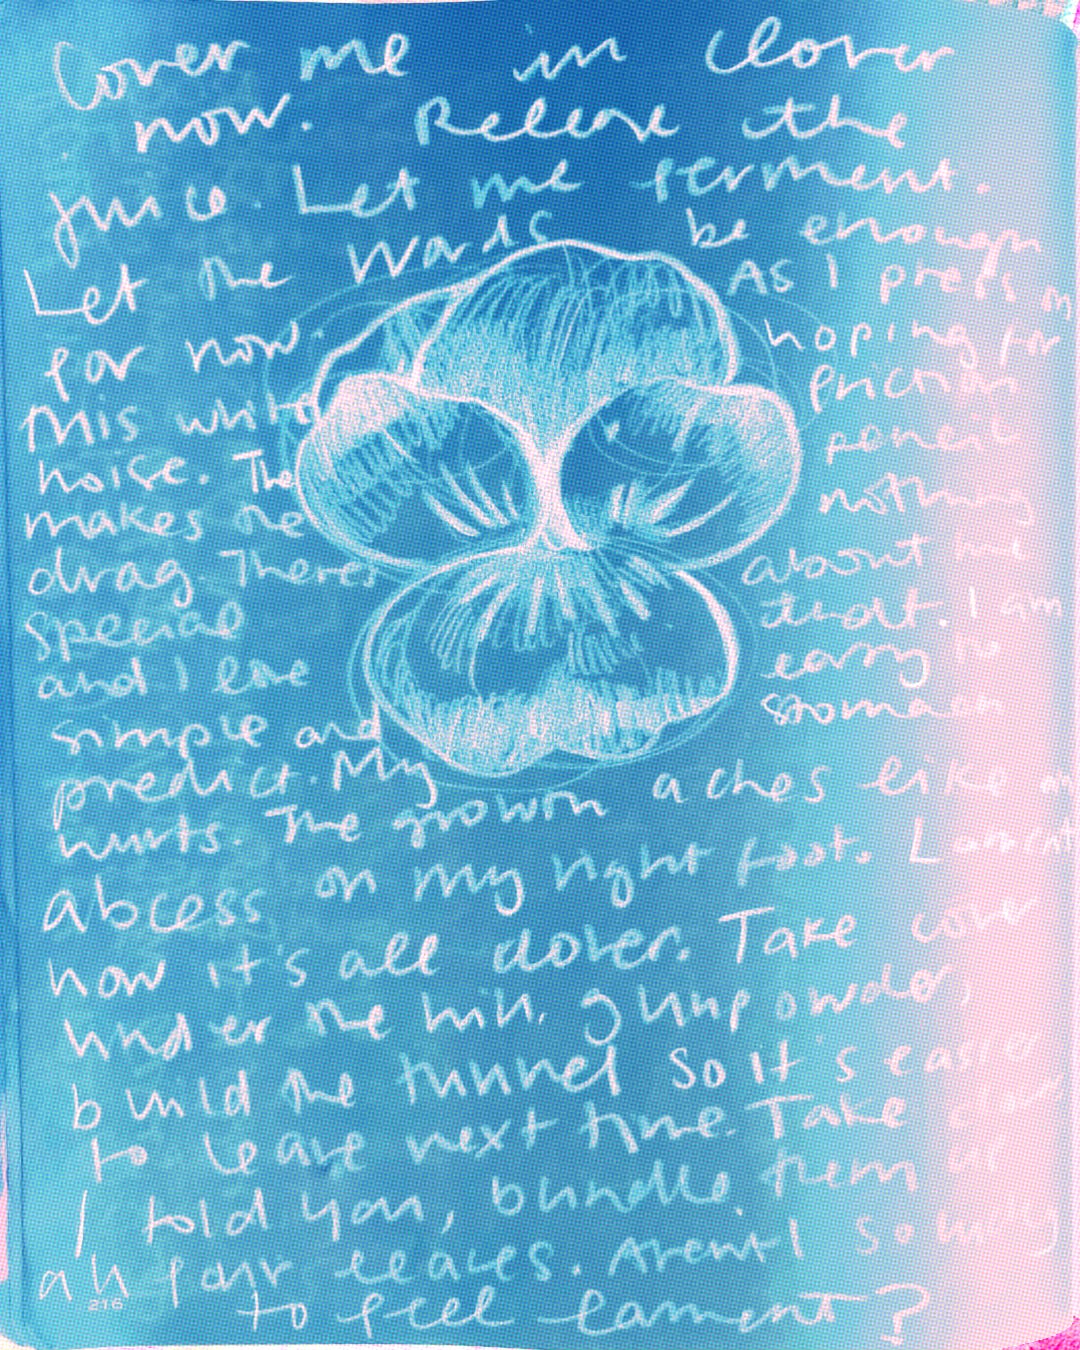 Cover me in clover
now. Release the
juice. Let me ferment.
Let the words be enough
for now. As I press on
this white hoping for
noise. The friction
makes the pencil
drag. Theres nothing
special about me
and I love that. I am
simple and easy to
predict. My stomach
hurts. The growth aches like an
abcess on my right foot. Lament
now it's all clover. Take cover
under the hill, gunpowder,
build the tunnel so it's easier
to leave next time. Take
I told you, bundle them up
all four leaves. Arent I so
to feel lament?
216